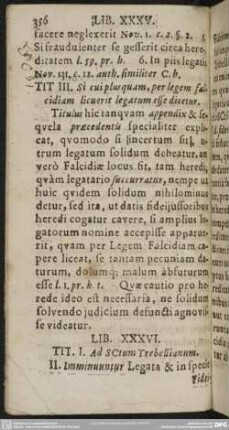 356 LIB. XXXV.
facere neglexerit Nov. 1. c. 2. §. 2. 5.
Si fraudulenter se gesserit circa here-
ditatem l. 59. pr. h. 6. In piis legatis
Nov. 131. c. 12. auth. similiter C. h.
TIT III. Si cui plusquam, per legem Fal-
cidiam licuerit legatum esse dicetur.
Titulus hic tanquam appendix & se-
quela præcedentis specialiter expli-
cat, quomodo si sincertum sit, u-
trum legatum solidum debeatur, an
verò Falcidiæ locus sit, tam heredi,
quàm legatario succurratur, nempe ut
huic quidem solidum nihilominus
detur, sed ita, ut datis fideijussoribus
heredi cogatur cavere, si amplius le-
gatorum nomine accepisse apparue-
rit, quam per Legem Falcidiam ca-
pere liceat, se tantam pecuniam da-
turum, dolumq; malum abfuturum
esse l. 1. pr. h. t. Quæ cautio pro he-
rede ideo est necessaria, ne solidum
solvendo judicium defuncti agnovis-
se videatur.
LIB. XXXVI.
TIT. I. Ad SCtum Trebellianum.
II. Imminuuntur Legata & in specie
Fidei